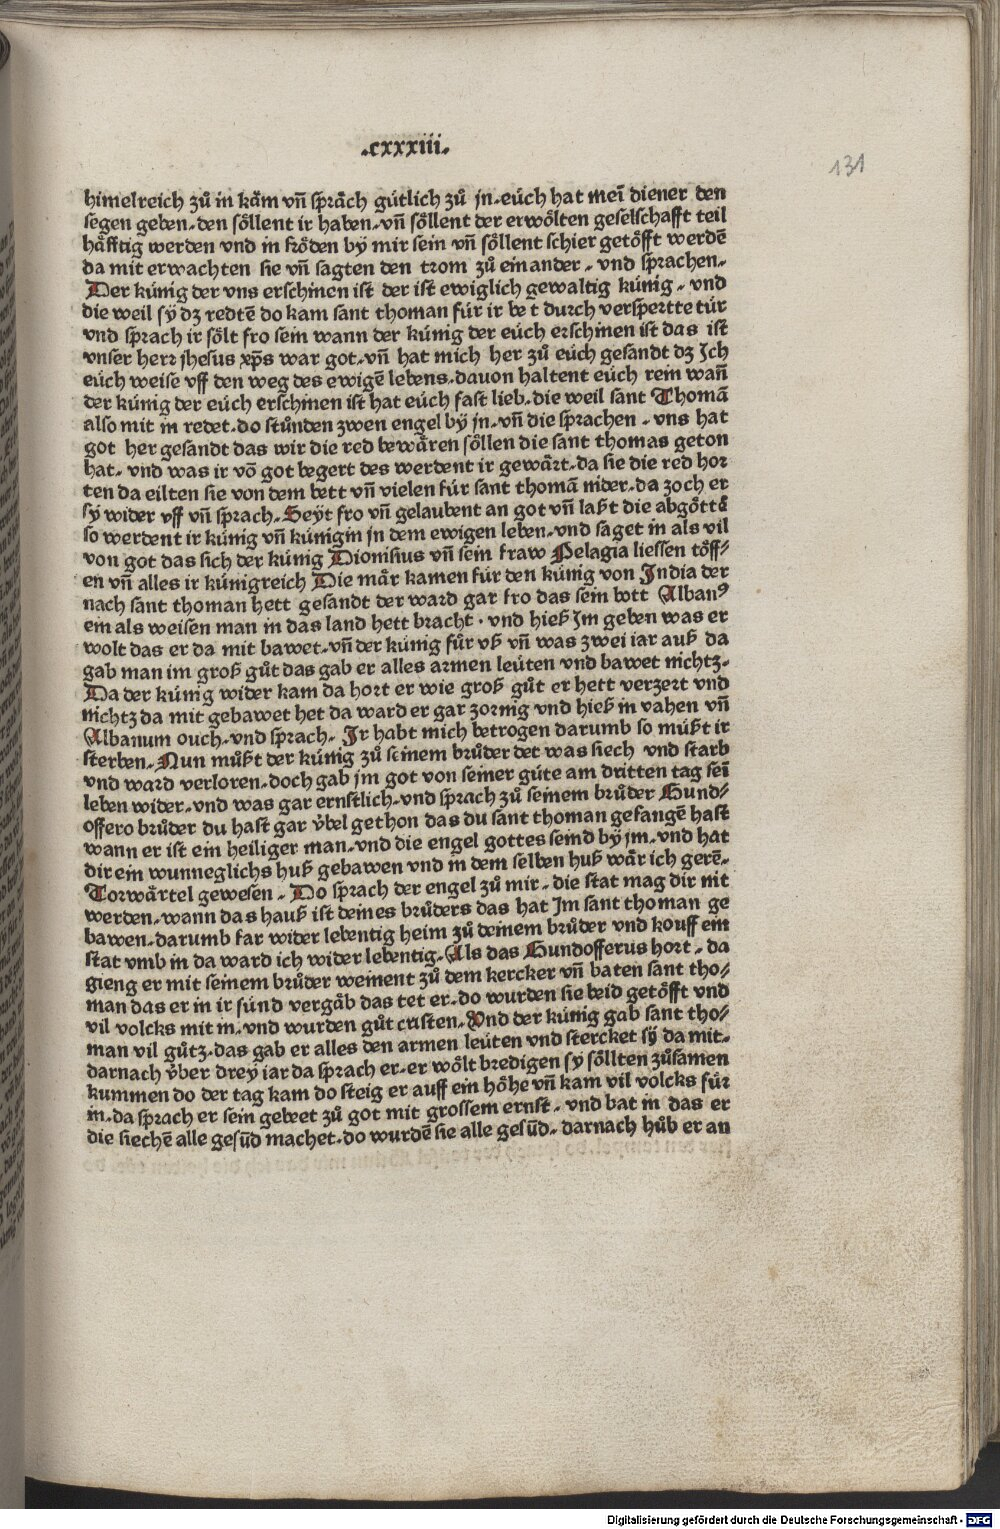 .cxxxiii.
131
himelreich zů in käm vñ spräch gůtlich zů jn. eůch hat meĩ diener den
segen geben. den söllent ir haben. vñ söllent der erwölten geselschafft teil
häfftig werden vnd in fröden by mir sein vñ söllent schier getöfft werdẽ
da mit erwachten sie vñ sagten den trom zů ein ander. vnd sprachen.
Der kúnig der vns erschinen ist der ist ewiglich gewaltig kúnig. vnd
die weil sÿ dz redtẽ do kam sant thoman fúr ir bet durch verspertte túr
vnd sprach ir sölt fro sein wann der kúnig der eúch erschinen ist das ist
vnser herr jhesus xp̃s war got. vñ hat mich her zů eúch gesandt dz Ich
eúch weise vff den weg des ewigẽ lebens. dauon haltent eúch rein wañ
der kúnig der eúch erschinen ist hat eúch fast lieb. die weil sant Thomã
also mit in redet. do stůnden zwen engel bÿ jn. vñ die sprachen. vns hat
got her gesandt das wir die red bewären söllen die sant thomas geton
hat. vnd was ir võ got begert des werdent ir gewärt. da sie die red hor
ten da eilten sie von dem bett vñ vielen fúr sant thomã nider. da zoch er
sÿ wider vff vñ sprach. Seÿt fro vñ gelaubent an got vñ laßt die abgöttẽ
so werdent ir kúnig vñ kúnigin jn dem ewigen leben. vnd saget in als vil
von got das sich der kúnig Dionisius vñ sein fraw Pelagia liessen töff/
en vñ alles ir kúnigreich Die mär kamen fúr den kúnig von India der
nach sant thoman hett gesandt der ward gar fro das sein bott Albanꝰ
ein als weisen man in das land hett bracht. vnd hieß Im geben was er
wolt das er da mit bawet. vñ der kúnig fůr vß vñ was zwei iar auß da
gab man im groß gůt das gab er alles armen leúten vnd bawet nichtz.
Da der kúnig wider kam da hort er wie groß gůt er hett verzert vnd
nichtz da mit gebawet het da ward er gar zornig vnd hieß in vahen vñ
Albanum ouch. vnd sprach. Ir habt mich betrogen darumb so můßt ir
sterben. Nun můßt der kúnig zů seinem brůder der was siech vnd starb
vnd ward verloren. doch gab jm got von seiner gúte am dritten tag seĩ
leben wider. vnd was gar ernstlich. vnd sprach zů seinem brůder Gund/
offero brůder du hast gar v̈bel gethon das du sant thoman gefangẽ hast
wann er ist ein heiliger man. vnd die engel gottes seind bÿ jm. vnd hat
dir ein wunneglichs huß gebawen vnd in dem selben huß wär ich gerẽ.
Torwärtel gewesen. Do sprach der engel zů mir. die stat mag dir nit
werden. wann das hauß ist deines brůders das hat Im sant thoman ge
bawen. darumb far wider lebentig heim zů deinem brůder vnd kouff ein
stat vmb in da ward ich wider lebentig. Als das Gundofferus hort. da
gieng er mit seinem brůder weinent zů dem kercker vñ baten sant tho/
man das er in ir súnd vergäb das tet er. do wurden sie beid getöfft vnd
vil volcks mit in. vnd wurden gůt cristen. Vnd der kúnig gab sant tho/
man vil gůtz. das gab er alles den armen leúten vnd stercket sÿ da mit.
darnach v̈ber dreÿ iar da sprach er. er wölt bredigen sy söllten zůsamen
kummen do der tag kam do steig er auff ein höhe vñ kam vil volcks fúr
in. da sprach er sein gebet zů got mit grossem ernst. vnd bat in das er
die siechẽ alle gesũd machet. do wurdẽ sie alle gesũd. darnach hůb er an
Digitalisierung gefördert durch die Deutsche Forschungsgemeinschaft - DFG